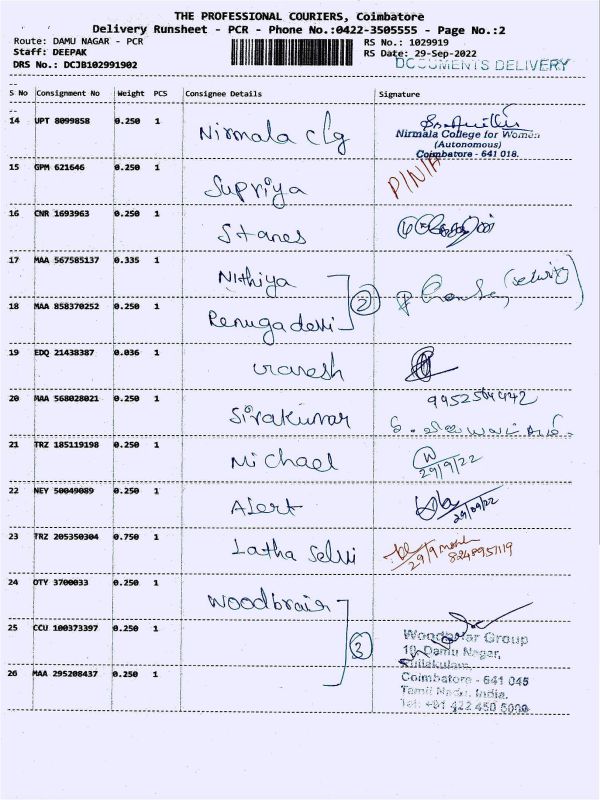 THE PROFESSIONAL COURIERS, Coimbatore
Delivery Runsheet - PCR - Phone No.:0422-3505555 - Page No.:2
Route: DAMU NAGAR - PCR
RS No.: 1029919
Staff: DEEPAK
RS Date: 29-Sep-2022
DRS No.: DCJB102991902
DOCUMENTS DELIVERY
S No Consignment No Weight PCS Consignee Details Signature
14 UPT 8099858 0.250 1 Nirmala clg
Nirmala College for Women
(Autonomous)
Coimbatore - 641 018.
15 GPM 621646 0.250 1 Supriya
16 CNR 1693963 0.250 1 Stanes
17 MAA 567585137 0.335 1 Nithiya
2
18 MAA 858370252 0.250 1 Renugadevi
19 EDQ 21438387 0.036 1
20 MAA 568028021 0.250 1 Sivakumar
21 TRZ 185119198 0.250 1 Michael
29/9/22
22 NEY 50049089 0.250 1 Alert
29/09/22
23 TRZ 205350304 0.750 1 Latha Selvi
29/9
8248957119
24 OTY 3700033 0.250 1 Woodbrair
25 CCU 100373397 0.250 1
3
Group
Damu Nagar,
26 MAA 295208437 0.250 1
Coimbatore - 641 045
Tamil Nadu, India.
Tel: +91 422 450 5000